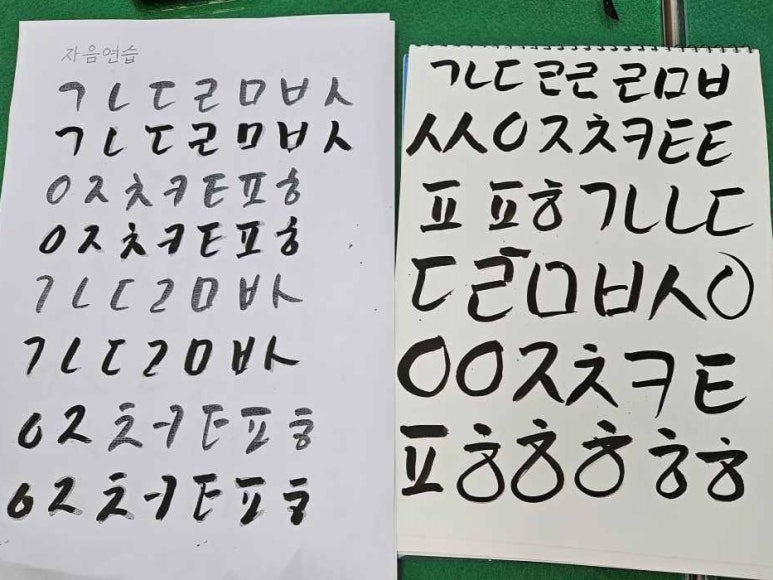 자음연습
ㄱㄴㄷㄹㅁㅂㅅ
ㄱㄴㄷㄹㅁㅂㅅ
ㅇㅈㅊㅋㅌㅍㅎ
ㅇㅈㅊㅋㅌㅍㅎ
ㄱㄴㄷㄹㅁㅂㅅ
ㄱㄴㄷㄹㅁㅂㅅ
ㅇㅈㅊㅋㅌㅍㅎ
ㅇㅈㅊㅋㅌㅍㅎ
ㄱㄴㄷㄹㄹㄹㅁㅂ
ㅅㅅㅇㅈㅊㅋㅌㅌ
ㅍㅍㅎㄱㄴㄴㄷ
ㄷㄹㅁㅂㅅㅇ
ㅇㅇㅈㅊㅋㅌ
ㅍㅎㅎㅎㅎㅎ